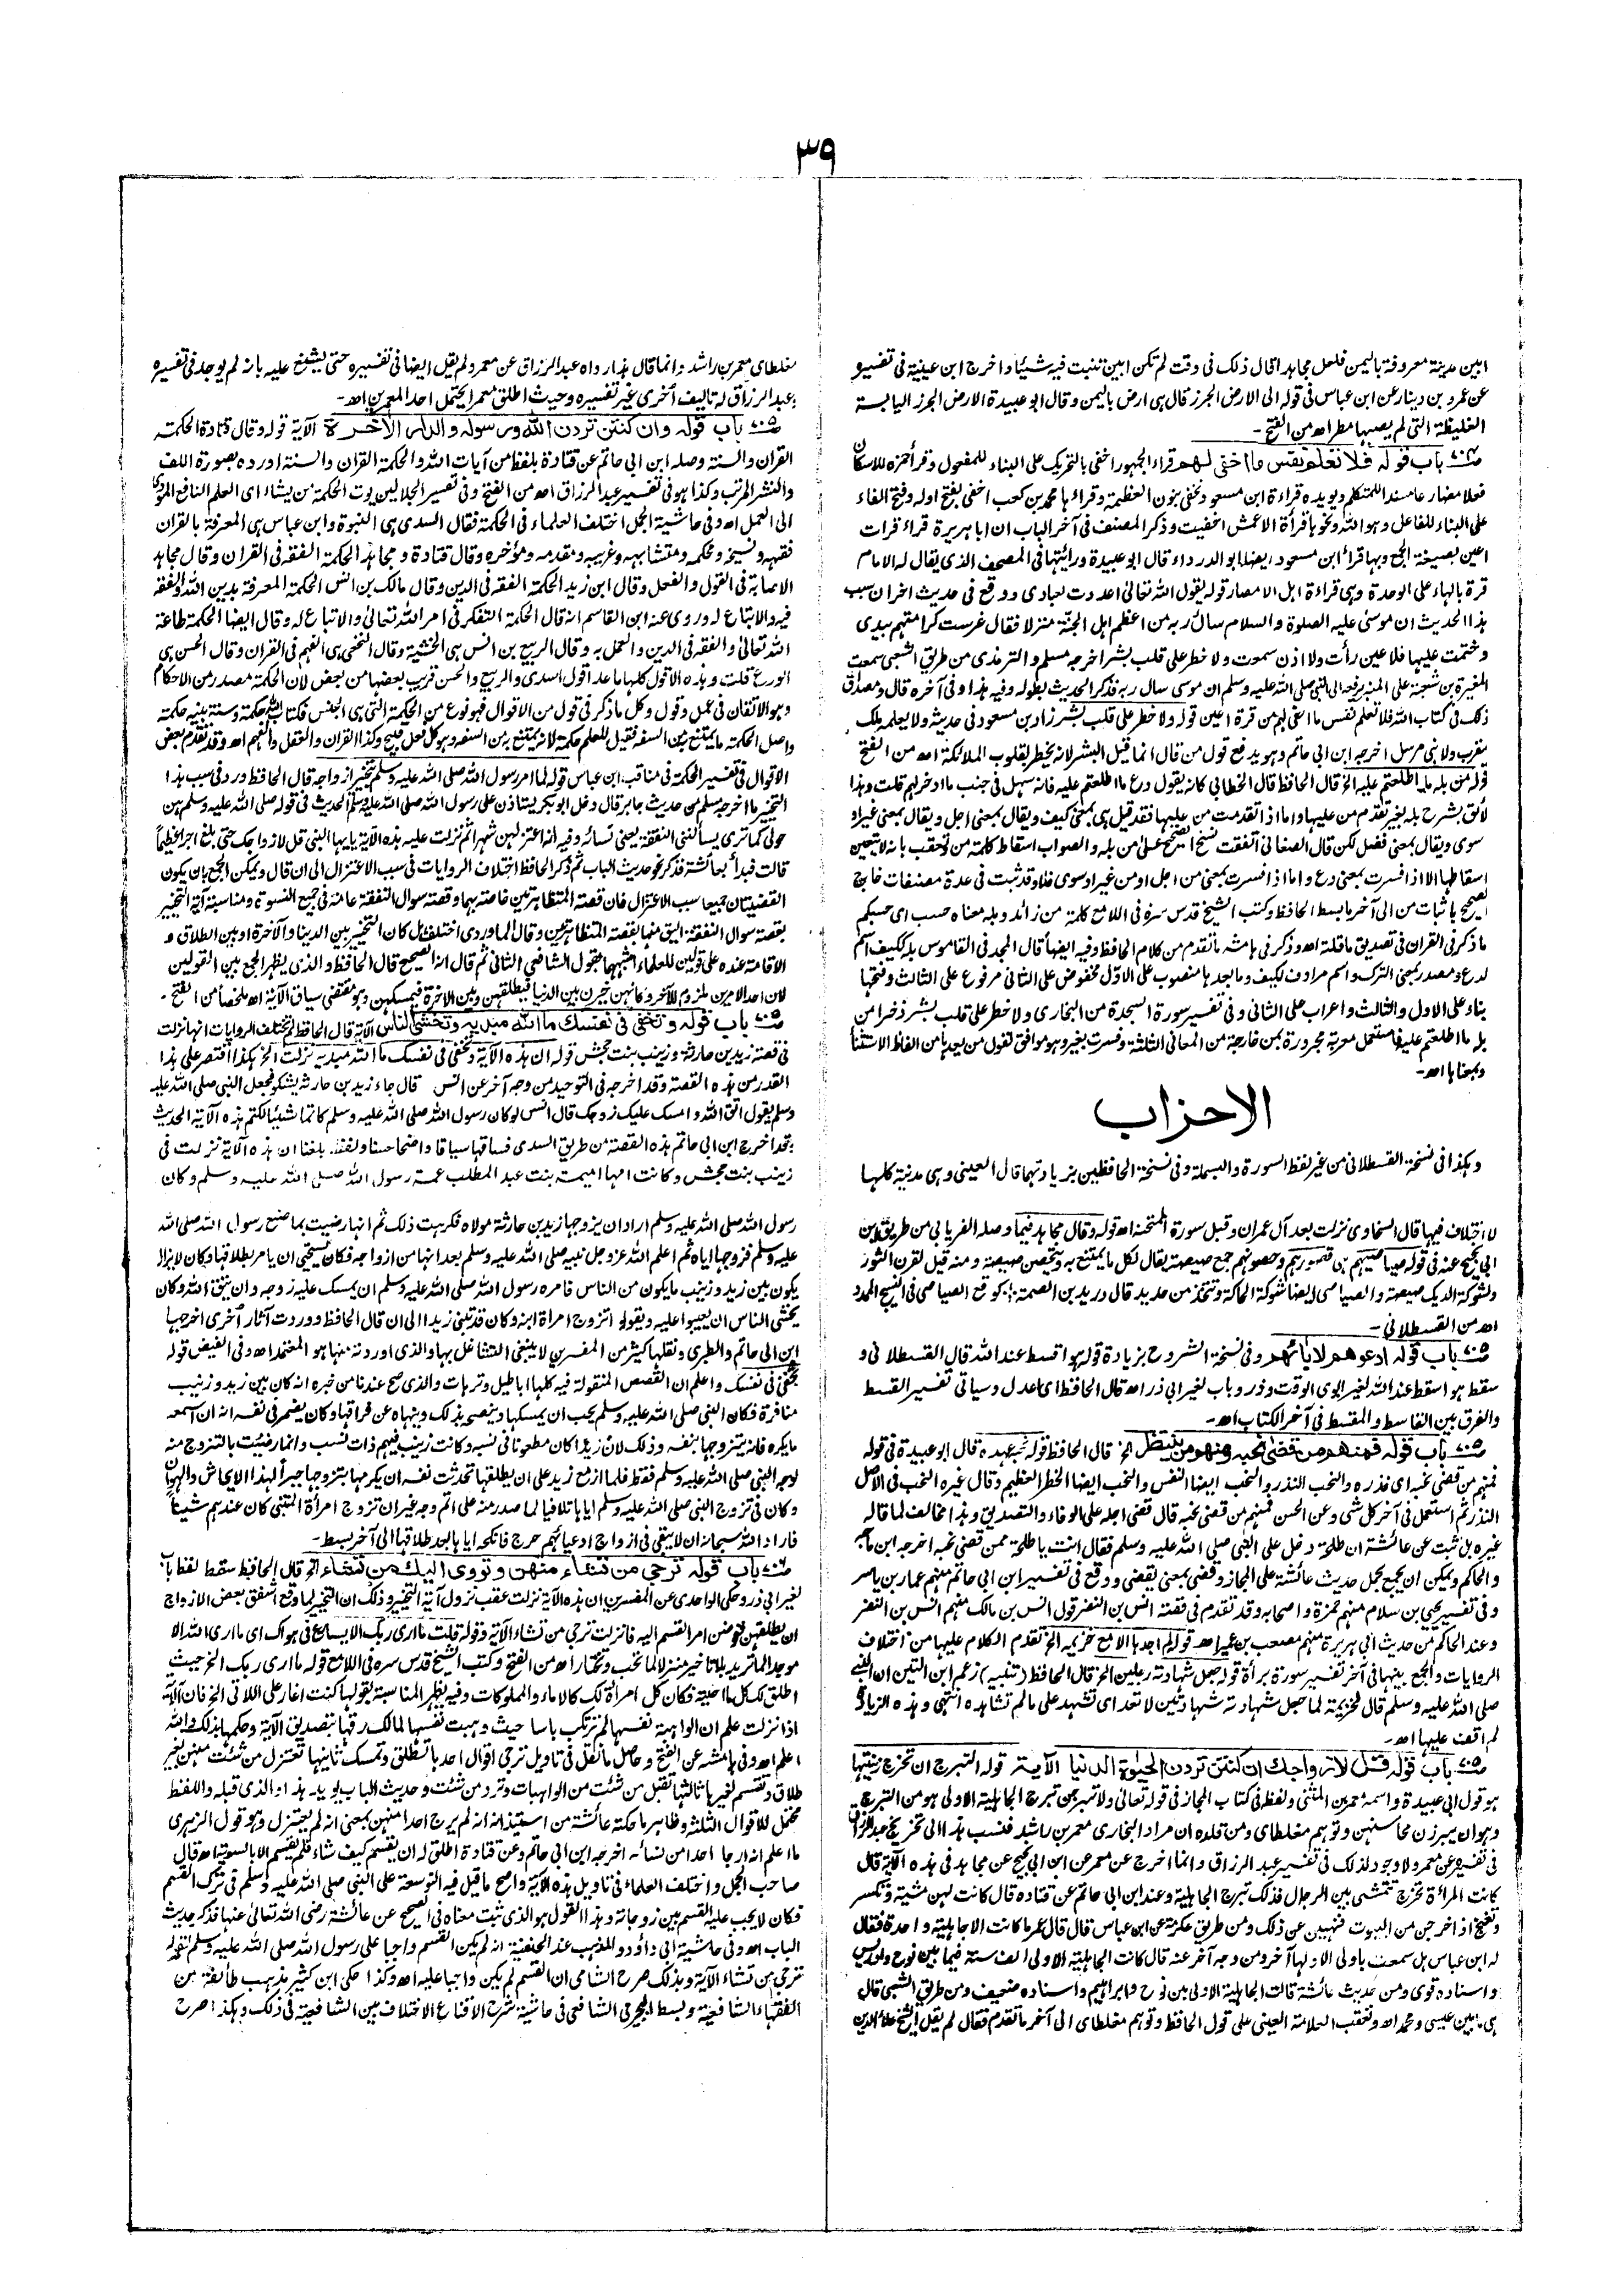 ٣٩
ابين مدينة معروفة باليمن فلعل مجاهدا قال ذلك فى وقت لم تكن ابين تنبت فيه شيئا واخرج ابن عيينة فى تفسيره
عن عمرو بن دينار عن ابن عباس فى قوله الى الارض الجرز قال هى ارض باليمن وقال ابو عبيدة الارض الجرز اليابسة
الغليظة التى لم يصبها مطر اه من الفتح ـ
باب قوله فلا تعلم نفس ما اخفى لهم قراء الجمهور اخفى بالتحريك على البناء للمفعول وقرأ حمزة للاسكان
فعلا مضارعا مسندا للمتكلم ويويده قراءة ابن مسعود نخفى بنون العظمة وقراءها محمد بن كعب اخفى بفتح اوله وفتح الفاء
على البناء للفاعل وهو الله ونحوها قرأة الاعمش اخفيت وذكر المصنف فى آخر الباب ان ابا هريرة قراء قرات
اعين بصيغة الجمع وبها قرأ ابن مسعود ايضا وابو الدرداء قال ابو عبيدة ورائيتها فى المصحف الذى يقال له الامام
قرة بالهاء على الوحدة وهى قراءة اهل الامصار قوله يقول الله تعالى اعددت لعبادى ووقع فى حديث اخر ان سبب
هذا الحديث ان موسى عليه الصلوة والسلام سال ربه من اعظم اهل الجنة منزلا فقال غرست كرامتهم بيدى
وختمت عليها فلا عين رأت ولا اذن سمعت ولا خطر على قلب بشر اخرجه مسلم والترمذى من طريق الشعبى سمعت
المغيرة بن شعبة على المنبر يرفعه الى النبى صلى الله عليه وسلم ان موسى سال ربه فذكر الحديث بطوله وفيه هذا وفى آخره قال ومصداق
ذلك فى كتاب الله فلا تعلم نفس ما اخفى لهم من قرة اعين قوله ولا خطر على قلب بشر زاد ابن مسعود فى حديثه ولا يعلمه ملك
مقرب ولا نبى مرسل اخرجه ابن ابى حاتم وهو يدفع قول من قال انما قيل البشر لانه يخطر بقلوب الملائكة اه من الفتح
قوله من بله ما اطلعتم عليه الخ قال الحافظ قال الخطابى كانه يقول دع ما اطلعتم عليه فانه سهل فى جنب ما ادخر لهم قلت وهذا
لائق بشرح بله بغير تقدم من عليها واما اذا تقدمت من عليها فقد قيل هى بمعنى كيف ويقال بمعنى اجل ويقال بمعنى غير او
سوى ويقال بمعنى فضل لكن قال الصغانى اتفقت نسخ الصحيح على من بله والصواب اسقاط كلمة من وتعقب بانه لا يتعين
اسقاطها الا اذا فسرت بمعنى دع واما اذا فسرت بمعنى من اجل او من غير او سوى فلا وقد ثبت فى عدة مصنفات خارج
الصحيح باثبات من الى آخر ما بسط الحافظ وكتب الشيخ قدس سره فى اللامع كلمة من زائد وبله معناه حسب اى حسبكم
ما ذكر فى القران فى تصديق ما قلته اه وذكر فى هامشه ما تقدم من كلام الحافظ وفيه ايضا قال المجد فى القاموس بله ككيف اسم
لدع ومصدر بمعنى الترك واسم مرادف لكيف وما بعدها منصوب على الاول مخفوض على الثانى مرفوع على الثالث وفتحها
بناء على الاول والثالث واعراب على الثانى وفى تفسير سورة السجدة من البخارى ولا خطر على قلب بشر ذخرا من
بله ما اطلعتم عليه فاستعمل معربة مجرورة بمن خارجة من المعانى الثلثة وفسرت بغير وهو موافق لقول من يعدها من الفاظ الاستثناء
وبمعناها اه ـ
الاحزاب
وهكذا فى نسخة القسطلانى من غير لفظ السورة والبسملة وفى نسخة الحافظين بزيادتهما قال العينى وهى مدنية كلها
لا اختلاف فيها قال السخاوى نزلت بعد آل عمران وقبل سورة الممتحنة اه قوله وقال مجاهد فيما وصله الفريابى من طريق ابن
ابى نجيح عنه فى قوله صياصيهم هى قصورهم وحصونهم جمع صيصية يقال لكل ما يمتنع به ويتحصن صيصية ومنه قيل لقرن الثور
ولشوكة الديك صيصية والصياصى ايضا شوكة الحاكة وتتخذ من حديد قال دريد بن الصمة :: كوقع الصياصى فى النسيج الممدد
اه من القسطلانى ـ
باب قوله ادعوهم لاباءهم وفى نسخة الشروح بزيادة قوله هو اقسط عند الله قال القسطلانى و
سقط هو اسقط عند الله لغير ابوى الوقت وذر وباب لغير ابى ذر اه قال الحافظ اى اعدل وسياتى تفسير القسط
والفرق بين القاسط والمقسط فى آخر الكتاب اه ـ
باب قوله فمنهم من قضى نحبه ومنهم من ينتظر الخ قال الحافظ قوله نحبه عهده قال ابو عبيدة فى قوله
فمنهم من قضى نحبه اى نذره والنحب النذر والنحب ايضا النفس والنحب ايضا الخطر العظيم وقال غيره النحب فى الاصل
النذر ثم استعمل فى آخر كل شئ وعن الحسن فمنهم من قضى نحبه قال قضى اجله على الوفاء والتصديق وهذا مخالف لما قاله
غيره بل ثبت عن عائشة ان طلحة دخل على النبى صلى الله عليه وسلم فقال انت يا طلحة ممن قضى نحبه اخرجه ابن ماجه
والحاكم ويمكن ان يجمع بحمل حديث عائشة على المجاز وقضى بمعنى يقضى ووقع فى تفسير ابن ابى حاتم منهم عمار بن ياسر
وفى تفسير يحيى بن سلام منهم حمزة واصحابه وقد تقدم فى قصة انس بن النضر قول انس بن مالك منهم انس بن النضر
وعند الحاكم من حديث ابى هريرة منهم مصعب بن عمير اه قوله لم اجدها الا مع خزيمه الخ تقدم الكلام عليها من اختلاف
الروايات والجمع بينها فى آخر تفسير سورة براءة قوله جعل شهادته رجلين الخ قال الحافظ (تنبيه) زعم ابن التين ان النبى
صلى الله عليه وسلم قال لخزيمة لما جعل شهادته شهادتين لا تعد اى تشهد على مالم تشاهده انتهى وهذه الزيادة
لم اقف عليها اه ـ
باب قوله قل لازواجك ان كنتن تردن الحيوة الدنيا الآية قوله التبرج ان تخرج زينتها
هو قول ابى عبيدة واسمه معمر بن المثنى ولفظه فى كتاب المجاز فى قوله تعالى ولا تبرجن تبرج الجاهلية الاولى هو من التبرج
وهو ان يبرزن محاسنهن وتوهم مغلطاى ومن قلده ان مراد البخارى معمر بن راشد فنسب هذا الى تخريج عبد الرزاق
فى تفسيره عن معمر ولا وجود لذلك فى تفسير عبد الرزاق وانما اخرج عن معمر عن ابن ابى نجيح عن مجاهد فى هذه الآية قال
كانت المرأة تخرج تتمشى بين الرجال فذلك تبرج الجاهلية وعند ابن ابى حاتم عن قتادة قال كانت لهن مشية وتكسر
وتغنج اذا خرجن من البيوت فنهين عن ذلك ومن طريق عكرمة عن ابن عباس قال قال عمر ما كانت الا جاهلية واحدة فقال
له ابن عباس هل سمعت باولى الا ولها آخر ومن وجه آخر عنه قال كانت الجاهلية الاولى الف سنة فيما بين نوح وادريس
واسناده قوى ومن حديث عائشة قالت الجاهلية الاولى بين نوح وابراهيم واسناده ضعيف ومن طريق الشعبى قال
هى ما بين عيسى ومحمد اه وتعقب العلامة العينى على قول الحافظ وتوهم مغلطاى الى آخر ما تقدم فقال لم يقل الشيخ علاء الدين
مغلطاى معمر بن راشد وانما قال هذا رواه عبد الرزاق عن معمر ولم يقل ايضا فى تفسيره حتى يشنع عليه بانه لم يوجد فى تفسيره
وعبد الرزاق له تاليف أخرى غير تفسيره وحيث اطلق معمرا يحتمل احد المعمرين اه ـ
باب قوله وان كنتن تردن الله ورسوله والدار الآخرة الآية قوله وقال قتادة الحكمة
القران والسنة وصله ابن ابى حاتم عن قتادة بلفظ من آيات الله والحكمة القران والسنة اورده بصورة اللف
والنشر المرتب وكذا هو فى تفسير عبد الرزاق اه من الفتح وفى تفسير الجلالين يوت الحكمة من يشاء اى العلم النافع المودى
الى العمل اه وفى حاشية الجمل اختلف العلماء فى الحكمة فقال السدى هى النبوة وابن عباس هى المعرفة بالقران
فقهه ونسخه ومحكمه ومتشابهه وغريبه ومقدمه ومؤخره وقال قتادة ومجاهد الحكمة الفقه فى القران وقال مجاهد
الاصابة فى القول والفعل وقال ابن زيد الحكمة الفقه فى الدين وقال مالك بن انس الحكمة المعرفة بدين الله والفقه
فيه والاتباع له وروى عنه ابن القاسم انه قال الحكمة التفكر فى امر الله تعالى والاتباع له وقال ايضا الحكمة طاعة
الله تعالى والفقه فى الدين والعمل به وقال الربيع بن انس هى الخشية وقال النخعى هى الفهم فى القران وقال الحسن هى
الورع قلت وهذه الاقول كلها ما عدا قول السدى والربيع والحسن قريب بعضها من بعض لان الحكمة مصدر من الاحكام
وهو الاتقان فى عمل وقول وكل ما ذكر فى قول من الاقوال فهو نوع من الحكمة التى هى الجنس فكتاب الله حكمة وسنة نبيه حكمة
واصل الحكمة ما يمتنع به من السفه فقيل للعلم حكمة لانه يمتنع به من السفه وهو كل فعل قبيح وكذا القران والعقل والفهم اه وقد تقدم بعض
الاقوال فى تفسير الحكمة فى مناقب ابن عباس قوله لما امر رسول الله صلى الله عليه وسلم بتخيير ازواجه قال الحافظ ورد فى سبب هذا
التخيير ما اخرجه مسلم من حديث جابر قال دخل ابو بكر يستاذن على رسول الله صلى الله عليه وسلم الحديث فى قوله صلى الله عليه وسلم هن
حولى كما ترى يسألننى النفقة يعنى نسائه وفيه انه اعتزلهن شهرا ثم نزلت عليه هذه الآية يايها النبى قل لازواجك حتى بلغ اجرا عظيماً
قالت فبدأ بعائشة فذكر نحو حديث الباب ثم ذكر الحافظ اختلاف الروايات فى سبب الاعتزال الى ان قال ويمكن الجمع بان يكون
القضيتان جميعا سبب الاعتزال فان قصة المتظاهرتين خاصة بهما وقصة سوال النفقة عامة فى جميع النسوة ومناسبة آية التخيير
بقصة سوال النفقة اليق منها بقصة المتظاهرتين وقال الماوردى اختلف هل كان التخيير بين الدنيا والآخرة او بين الطلاق و
الاقامة عنده على قولين للعلماء اشبههما بقول الشافعى الثانى ثم قال انه الصحيح قال الحافظ والذى يظهر الجمع بين القولين
لان احد الامرين ملزوم للآخر وكانهن خيرن بين الدنيا فيطلقهن وبين الاخرة فيمسكهن وهو مقتضى سياق الآية اه ملخصا من الفتح ـ
باب قوله وتخفى فى نفسك ما الله مبديه وتخشى الناس الآية قال الحافظ لم تختلف الروايات انها نزلت
فى قصة زيد بن حارثة وزينب بنت جحش قوله ان هذه الآية وتخفى فى نفسك ما الله مبديه نزلت الخ هكذا اقتصر على هذا
القدر من هذه القصة وقد اخرجه فى التوحيد من وجه آخر عن انس قال جاء زيد بن حارثة يشكو فجعل النبى صلى الله عليه
وسلم يقول اتق الله وامسك عليك زوجك قال انس لو كان رسول الله صلى الله عليه وسلم كاتما شيئا لكتم هذه الآية الحديث
وقد اخرج ابن ابى حاتم هذه القصة من طريق السدى فساقها سياقا واضحا حسنا ولفظه بلغنا ان هذه الآية نزلت فى
زينب بنت جحش وكانت امها اميمة بنت عبد المطلب عمة رسول الله صلى الله عليه وسلم وكان
رسول الله صلى الله عليه وسلم اراد ان يزوجها زيد بن حارثة مولاه فكرهت ذلك ثم انها رضيت بما صنع رسول الله صلى الله
عليه وسلم فزوجها اياه ثم اعلم الله عز وجل نبيه صلى الله عليه وسلم بعد انها من ازواجه فكان يستحيى ان يامر بطلاقها وكان لا يزال
يكون بين زيد وزينب ما يكون من الناس فامره رسول الله صلى الله عليه وسلم ان يمسك عليه زوجه وان يتقى الله وكان
يخشى الناس ان يعيبوا عليه ويقولوا تزوج امرأة ابنه وكان قد تبنى زيدا الى ان قال الحافظ ووردت آثار أخرى اخرجها
ابن ابى حاتم والطبرى ونقلها كثير من المفسرين لا ينبغى التشاغل بها والذى اوردته منها هو المعتمد اه وفى الفيض قوله
تخفى فى نفسك واعلم ان القصص المنقولة فيه كلها اباطيل وترهات والذى صح عندنا من خبره انه كان بين زيد وزينب
منافرة فكان النبى صلى الله عليه وسلم يحب ان يمسكها وينصحه بذلك وينهاه عن فراقها وكان يضمر فى نفسه انه ان اسمعه
ما يكره فانه يتزوجها بنفسه وذلك لان زيدا كان مطعونا فى نسبه وكانت زينب فيهم ذات نسب وانما رضيت بالتزوج منه
لوجه النبى صلى الله عليه وسلم فقط فلما ازمع زيد على ان يطلقها تحدثت نفسه ان يكرمها بتزوجها جبرا لهذا الايحاش والهوان
وكان فى تزوج النبى صلى الله عليه وسلم اياها تلافيا لما صدر منه على اتم وجه غير ان تزوج امرأة المتبنى كان عندهم شيئاً
فاراد الله سبحانه ان لا يبقى فى ازواج ادعيائهم حرج فانكحه اياها بعد طلاقها الى آخر بسط ـ
باب قوله ترجى من تشاء منهن وتووى اليك من تشاء الخ قال الحافظ سقط لفظ باب
لغير ابى ذر وحكى الواحدى عن المفسرين ان هذه الآية نزلت عقب نزول آية التخيير وذلك ان التخيير لما وقع اشفق بعض الازواج
ان يطلقهن ففوضن امر القسم اليه فانزلت ترجى من تشاء الآية وقوله قلت ما ارى ربك الا يسارع فى هواك اى ما ارى الله الا
موجدا لما تريد بلا تاخير منزلا لما تحب وتختار اه من الفتح وكتب الشيخ قدس سره فى اللامع قوله ما ارى ربك الخ حيث
اطلق لك كل ما احببته فكان كل امرأة لك كالاماء والمملوكات وفيه يظهر المناسبة بقولها كنت اغار على اللاتى الخ فان الآية
اذا نزلت علم ان الواهبة نفسها لم ترتكب باسا حيث وهبت نفسها لمالك رقها بتصديق الآية وحكمها بذلك والله
اعلم اه وفى هامشه عن الفتح وحاصل ما نقل فى تاويل ترجى اقوال احدها تطلق وتمسك ثانيها تعتزل من شئت منهن بغير
طلاق وتقسم لغيرها ثالثها تقبل من شئت من الواهبات وترد من شئت وحديث الباب يويد هذا والذى قبله واللفظ
محتمل للاقوال الثلثة وظاهر ما حكته عائشة من استيذانه انه لم يرج احدا منهن بمعنى انه لم يعتزل وهو قول الزهرى
ما اعلم انه ارجا احدا من نسائه اخرجه ابن ابى حاتم وعن قتادة اطلق له ان يقسم كيف شاء فلم يقسم الا بالسوية اه قال
صاحب الجمل واختلف العلماء فى تاويل هذه الآية واصح ما قيل فيه التوسعة على النبى صلى الله عليه وسلم فى ترك القسم
فكان لا يجب عليه القسم بين زوجاته وهذا القول هو الذى ثبت معناه فى الصحيح عن عائشة رضى الله تعالى عنها فذكر حديث
الباب اه وفى حاشية ابى داؤد والمذهب عند الحنفية انه لم يكن القسم واجبا على رسول الله صلى الله عليه وسلم لقوله
ترجى من تشاء الآية وبذلك صرح الشامى ان القسم لم يكن واجبا عليه اه وكذا حكى ابن كثير مذهب طائفة من
الفقهاء الشافعية وبسط البجيرمى الشافعى فى حاشية شرح الاقناع الاختلاف بين الشافعية فى ذلك وهكذا صرح